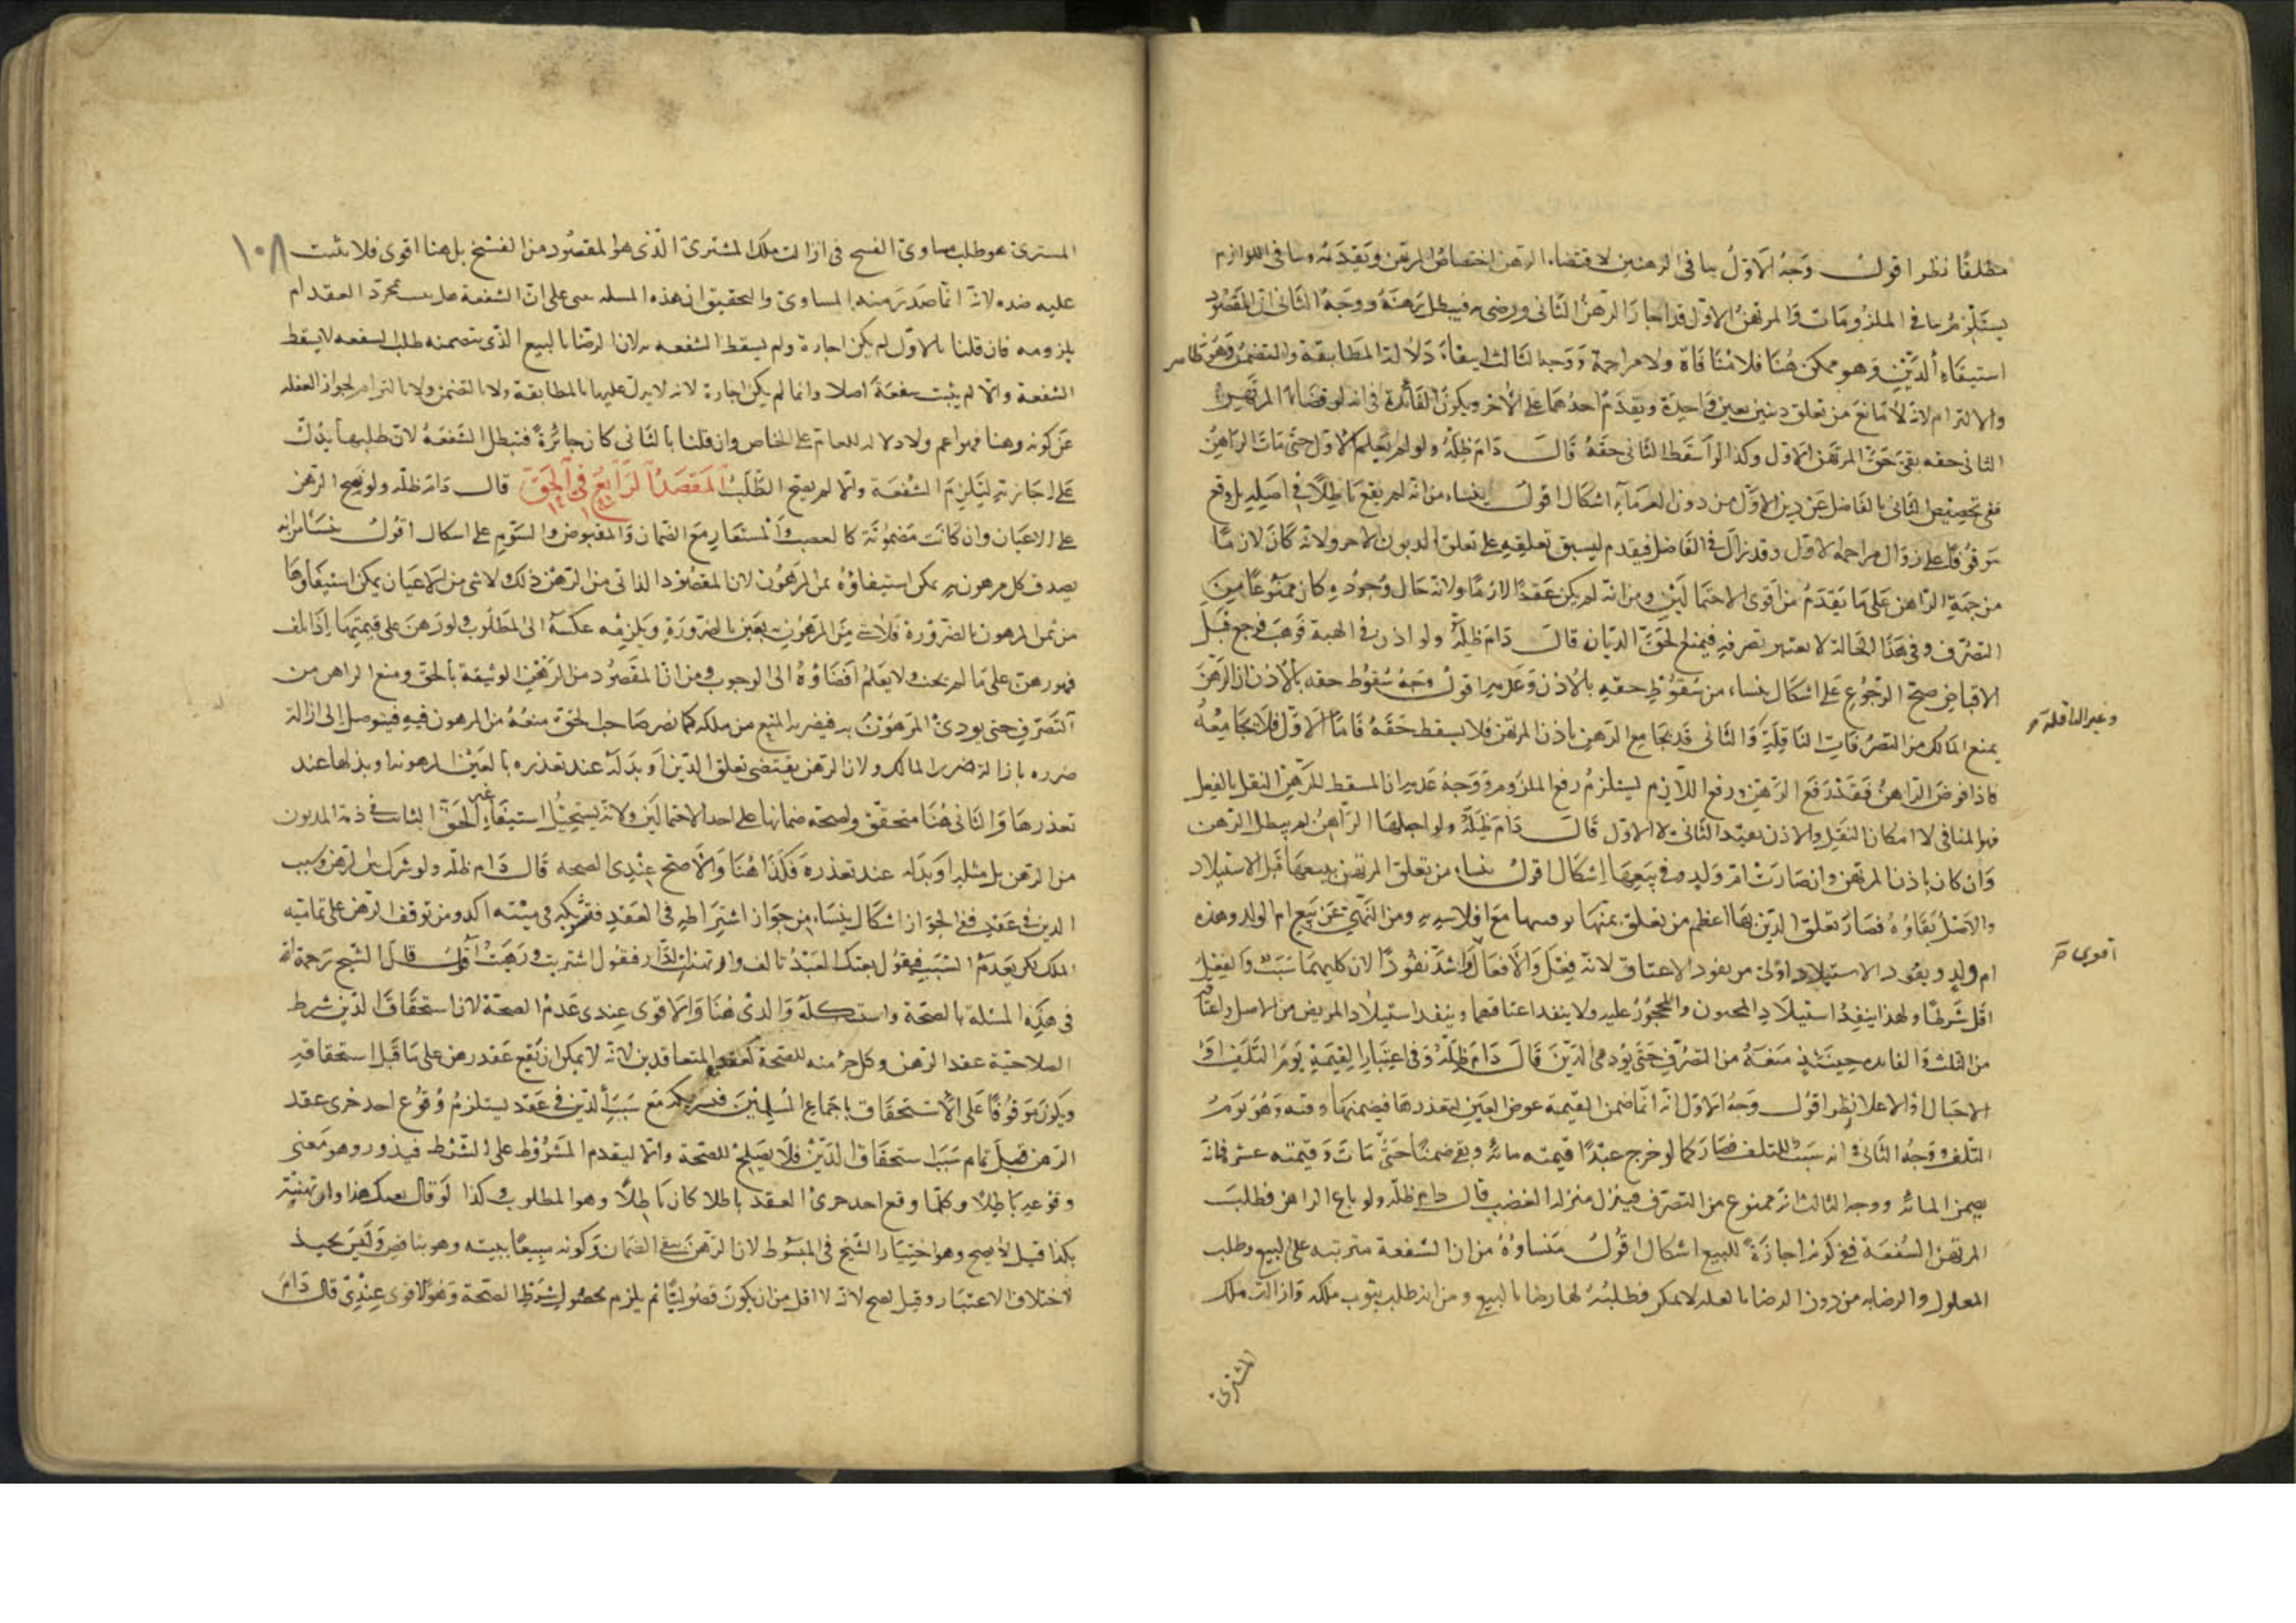 مطلقا نظر اقول وجه الاول تنافى الرهنين لاقتضاء الرهن اختصاص المرتهن وتقدمه وتنافى اللوازم
يستلزم تنافى الملزومات والمرتهن الاول قد اجاز الرهن الثانى ورضى به فيبطل رهنه ووجه الثانى ان المقصود
استيفاء الدين وهو ممكن هنا فلا منافاة ولا مزاحمة ووجه الثالث انتفاء دلالة المطابقة والتضمن وهو ظاهر
والالتزام لانه لا مانع من تعلق دينين بعين واحدة ويقدم احدهما على الاخر ويكون الفائدة فى انه لو قضى المرتهن
الثانى حقه بقى حق المرتهن الاول وكذا لو اسقط الثانى حقه قال دام ظله ولو لم يعلم الاول حتى مات الراهن
ففى تخصيص الثانى بالفاضل عن دين الاول من دون الغرماء اشكال اقول ينشاء من انه لم يقع باطلا فى اصله بل وقع
موقوفا على زوال مزاحمة الاول وقد زال فى الفاضل فيقدم لسبق تعلقه على تعلق الديون الاخر ولانه كان لازما
من جهة الراهن على ما تقدم من اقوى الاحتمالين ومن انه لم يكن عقدا لازما ولانه حال وجوده كان ممنوعا من
التصرف وفى هذا الحالة لا يعتبر تصرفه فيمنع لحق الديان قال دام ظله ولو اذن فى الهبة فوهب فرجع قبل
الاقباض صح الرجوع على اشكال ينشاء من سقوط حقه بالاذن وعدمه اقول وجه سقوط حقه بالاذن ان الرهن
يمنع المالك من التصرفات الناقلة والثانى قد يجامع الرهن باذن المرتهن فلا يسقط حقه فاما الاول فلا يجامعه
وغير الناقلة
فاذا فوض الراهن فقد رفع الرهن ورفع اللازم يستلزم رفع الملزوم ووجه عدمه ان المسقط للرهن النقل بالفعل
فهو المنافى لا امكان النقل والاذن يفيد الثانى لا الاول قال دام ظله ولو احبلها الراهن لم يبطل الرهن
وان كان باذن المرتهن وان صارت ام ولد وفى بيعها اشكال اقول ينشاء من تعلق المرتهن ببيعها قبل الاستيلاد
والاصل بقاؤه فصار تعلق الدين بها اعظم من تعلق بثمنها مع افلاسه ومن النهى عن بيع ام الولد وهذه
ام ولد ونفوذ الاستيلاد اولى من نفوذ الاعتاق لانه فعل والافعال اشد نفوذا لان كليهما سبب والفعل
اقوى
اقل شرطا ولهذا ينفذ استيلاد المجنون والمحجور عليه ولا ينفذ اعتاقهما وينفذ استيلاد المريض من الاصل واعتاقه
من الثلث والفائدة حينئذ منعه من التصرف حتى يؤدى الدين قال دام ظله وفى اعتبار القيمة يوم التلف او
الاحبال او الاعلا نظر اقول وجه الاول انه انما ضمن القيمة عوض العين لتعذرها فيضمنها وقته وهو يوم
التلف ووجه الثانى انه سبب للتلف فصار كما لو جرح عبدا قيمته مائة وبقى ضمنا حتى مات وقيمته عشر فانه
يضمن المائة ووجه الثالث انه ممنوع من التصرف فينزل منزلة الغصب قال دام ظله ولو باع الراهن فطلب
المرتهن الشفعة ففى كونه اجازة للبيع اشكال اقول منشاؤه من ان الشفعة مترتبة على البيع وطلب
المعلول والرضا به من دون الرضا بالعلة لا يمكن فطلبه لها رضا بالبيع ومن انه طلب ثبوت ملكه وازالة ملك
المشترى
١٠٨
المشترى هو طلب مساوى الفسخ فى ازالة ملك المشترى الذى هو المقصود من الفسخ بل هنا اقوى فلا يثبت
عليه ضده لانه انما صدر منه المساوى والتحقيق ان هذه المسئلة مبنى على ان الشفعة هل يثبت بمجرد العقد ام
بلزومه فان قلنا بالاول لم يكن اجازة ولم يسقط الشفعة به لان الرضا بالبيع الذى يتضمنه طلب الشفعة لا يسقط
الشفعة والا لم يثبت شفعة اصلا وانما لم يكن اجازة لانه لا يدل عليها بالمطابقة ولا بالتضمن ولا بالتزام لجواز الغفلة
عن كونه رهنا فهو اعم ولا دلالة للعام على الخاص وان قلنا بالثانى كان جائزة فتبطل الشفعة لان طلبها يدل
على اجازته ليلزم الشفعة والا لم يصح الطلب المقصد الرابع فى الحق قال دام ظله ولو يصح الرهن
على الاعيان وان كانت مضمونة كالغصب والمستعار مع الضمان والمقبوض والسوم على اشكال اقول ينشاء من انه
يصدق كل مرهون به يمكن استيفاؤه من المرهون لان المقصود الذاتى من الرهن ذلك لا شى من الاعيان يمكن استيفاؤها
من ثمن المرهون بالضرورة فلا شى من المرهون به بعين بالضرورة ويلزمه عكسه الى المطلوب ولو رهن على قيمتها اذا تلف
فهو رهن على ما لم يجب ولا يعلم افضاؤه الى الوجوب ومن ان المقصود من الرهن الوثيقة بالحق ومنع الراهن من
التصرف حتى يودى المرهون به فيضر به المنع من ملكه كما نصر صاحب الحق منعه من المرهون فيه فيتوصل الى ازالة
ضرره بازالة ضرر المالك ولان الرهن يقتضى تعلق الدين او بدله عند تعذره بالعين المرهونة وبذلها عند
تعذرها والثانى هنا متحقق ولصحة ضمانها على احد الاحتمالين ولانه يستحيل استيفاء غير الحق الثابت فى ذمة المديون
من الرهن بل مثله او بدله عند تعذره فكذا هنا والاصح عندى الصحة قال دام ظله ولو شرك بين الرهن وسبب
الدين فى عقد ففى الجواز اشكال ينشاء من جواز اشتراطه فى العقد فتشريكه فى متنه اكد ومن توقف الرهن على تمامية
الملك لكن يقدم السبب فيقول بعتك العبد بالف وارتهنت الدار فيقول اشتريت ورهنت اقول قال الشيخ رحمة الله
فى هذه المسئلة بالصحة واستشكله والدى هنا والاقوى عندى عدم الصحة لان استحقاق الدين شرط
الصلاحية عقد الرهن وكل جزء منه للصحة كعقل المتعاقدين لانه لا يمكن ان يقع عقد رهن على ما قبل استحقاقه
ويكون موقوفا على الاستحقاق باجماع المسلمين فتشريكه مع سبب الدين فى عقد يستلزم وقوع احد جزئى عقد
الرهن قبل تمام سبب استحقاق الدين فلا يصلح للصحة والا ليقدم المشروط على الشرط فيدور وهو معنى
وقوعه باطلا وكلما وقع احد جزئ العقد باطلا كان باطلا وهو المطلوب وكذا لو قال بعتك هذا وارتهنته
بكذا قيل لا يصح وهو اختيار الشيخ فى المبسوط لان الرهن ينفى الضمان وكونه مبيعا يثبته وهو يناقض وليس بجيد
لاختلاف الاعتبار وقيل يصح لانه لا اقل من ان يكون فضوليا ثم يلزم بحصول شرط الصحة وهو الاقوى عندى قال دام